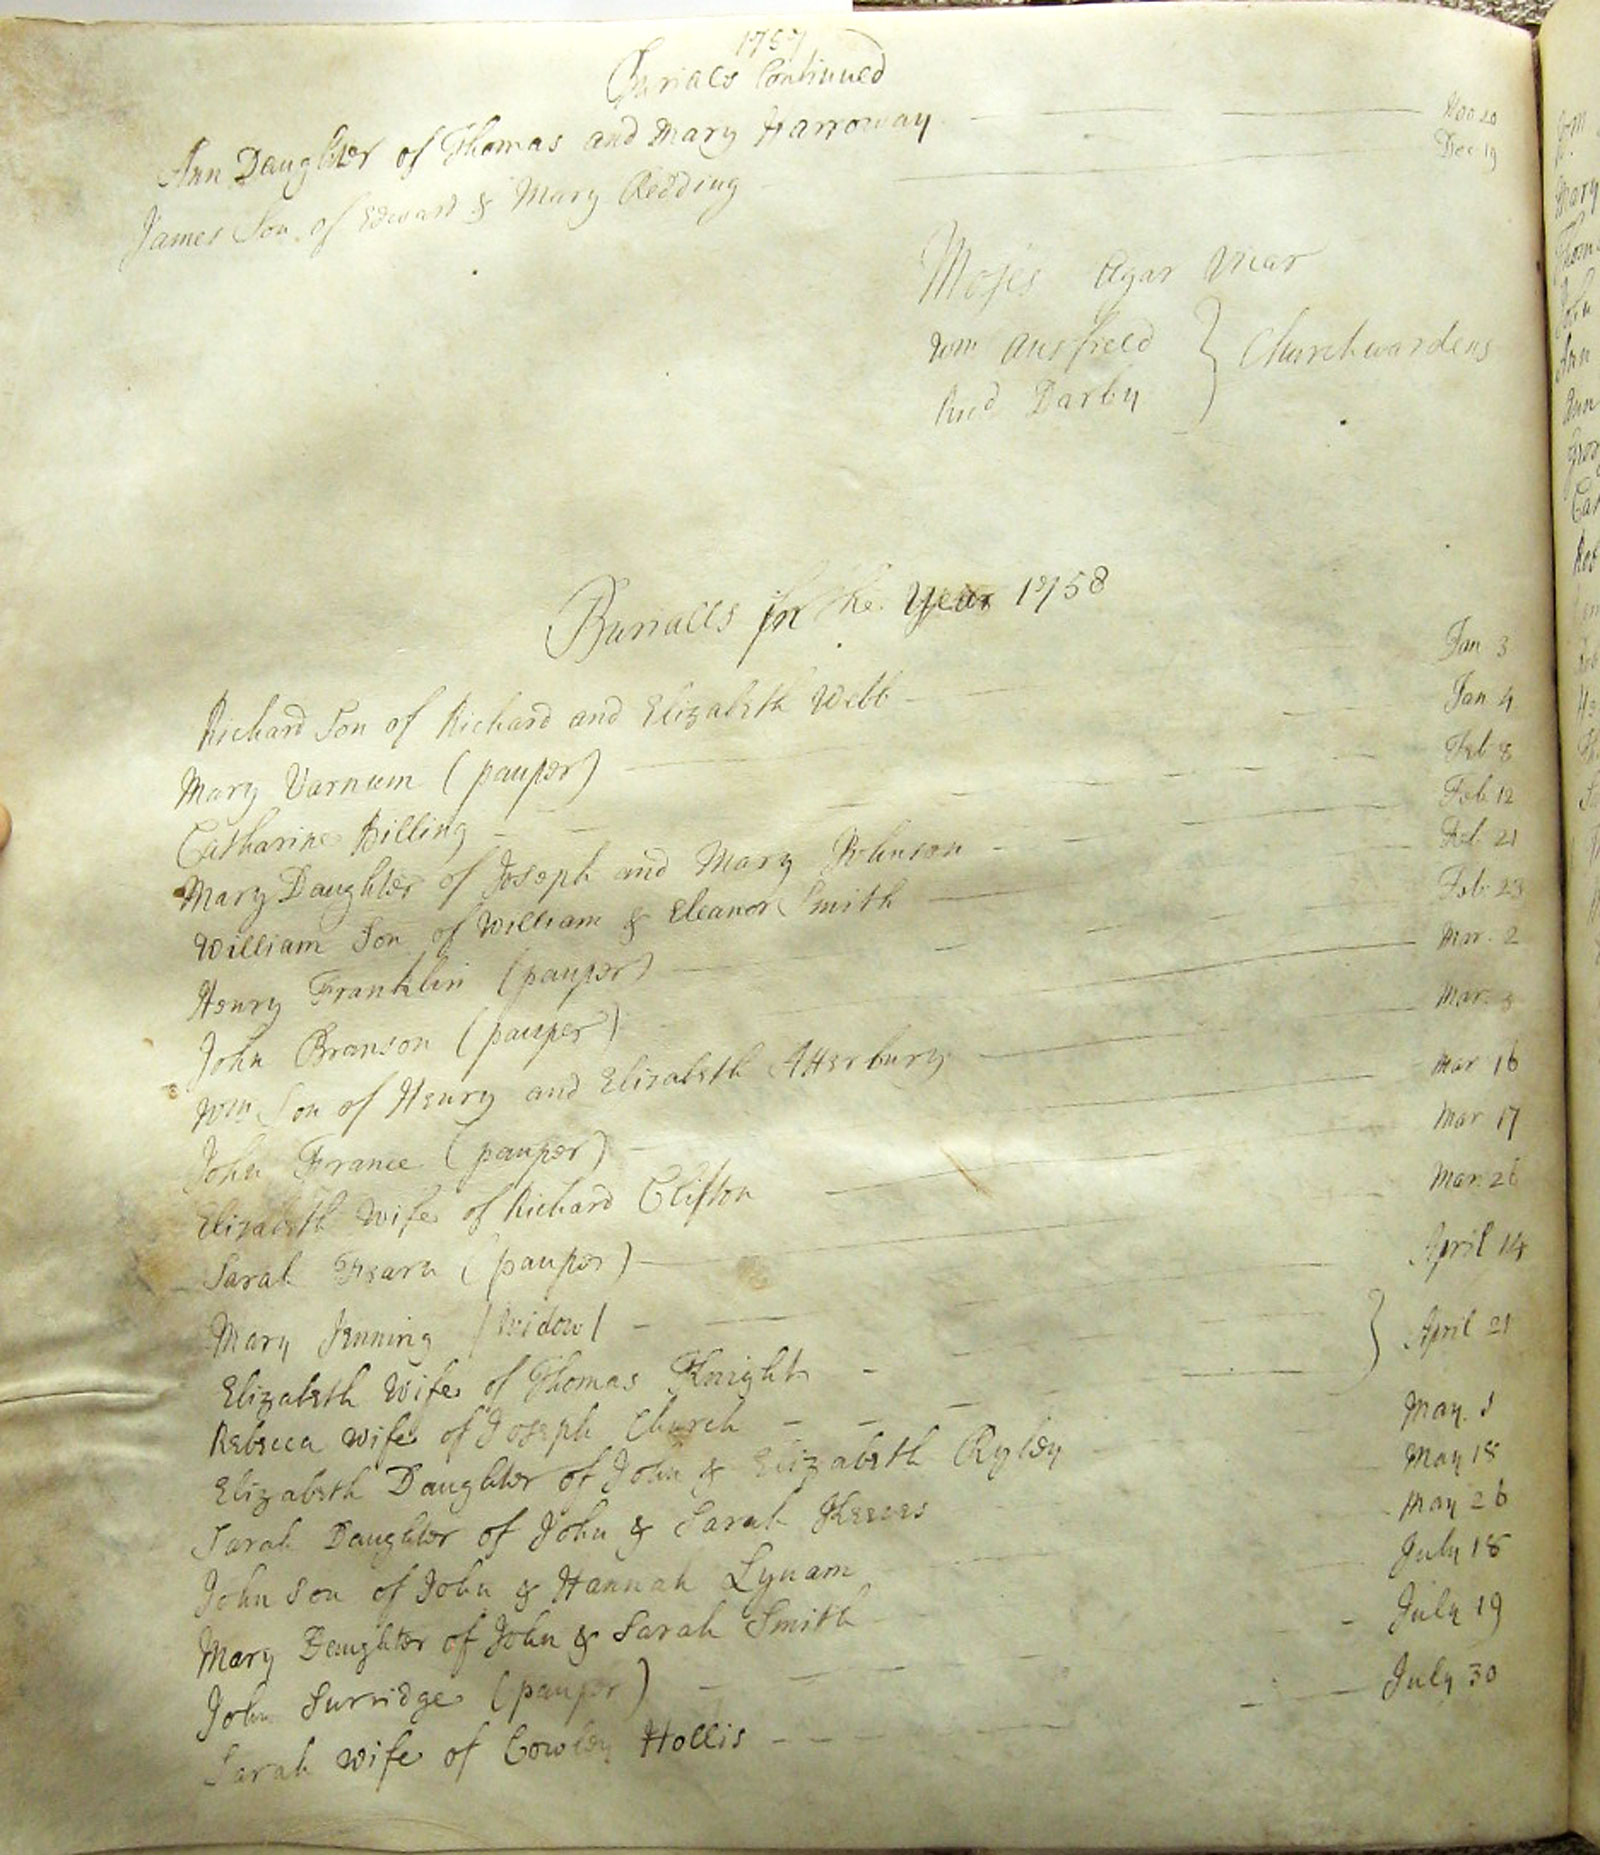 1757
Burials Continued
Ann Daughter of Thomas and Mary Harroway Nov 20
James Son of Edward & Mary Redding Dec 19
Moses Agar Vicar
Wm Churchwardens
Ricd Darby
Burialls in the Year 1758
Richard Son of Richard and Elizabeth Webb Jan 3
Mary Varnum (pauper) Jan 4
Catharine Billing Feb 8
Mary Daughter of Joseph and Mary Johnson Feb 12
William Son of William & Eleanor Smith Feb 21
Henry Franklin (pauper) Feb 23
John Branson (pauper) Mar. 2
Wm Son of Henry and Elizabeth Atterbury Mar.
John France (pauper) Mar 16
Elizabeth Wife of Richard Clifton Mar 17
Sarah Fearn (pauper) Mar. 26
Mary Jenning (Widow) April 14
Elizabeth Wife of Thomas Knight } April 21
Rebecca wife of Joseph Church
Elizabeth Daughter of John & Elizabeth Ryley May
Sarah Daughter of John & Sarah May 18
John Son of John & Hannah Lynam May 26
Mary Daughter of John & Sarah Smith July 18
John Surridge (pauper) July 19
Sarah wife of Cowley Hollis July 30
Mary
John
Ann
Ann